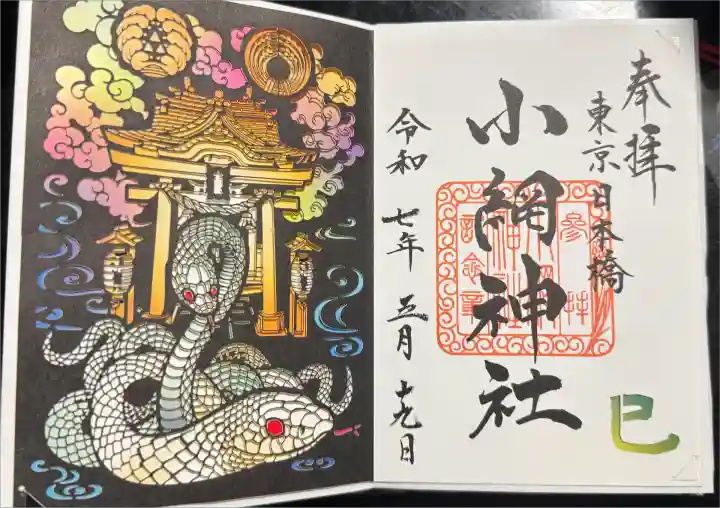 奉拝
東京 日本橋
小網神社
令和 七年 五月 十九日
巳